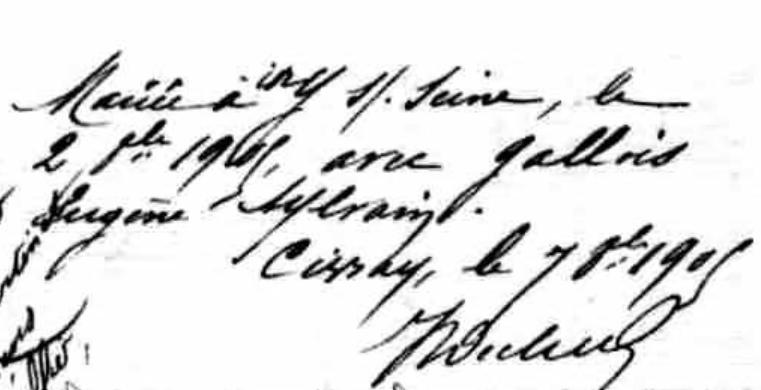 Mariée à Ivry s/. Seine, le
2 8bre 1905, avec Gallois
Eugène Sylvain.
Cirray, le 7 8bre 1905